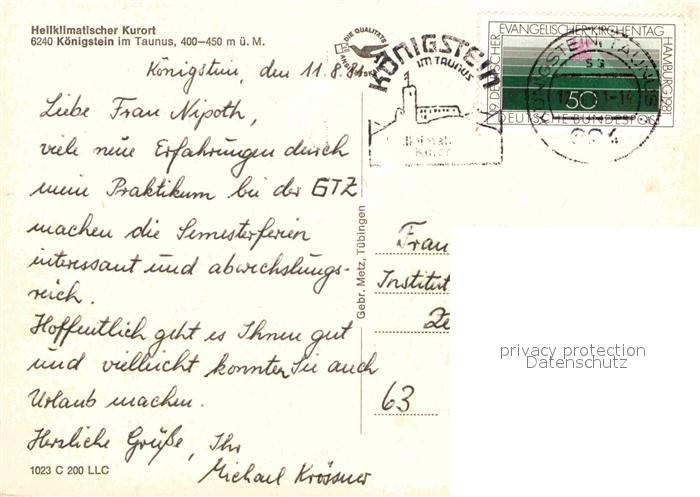 Heilklimatischer Kurort
6240 Königstein im Taunus, 400–450 m ü. M.
DIE QUALITÄTS
KÖNIGSTEIN
IM TAUNUS
19. DEUTSCHER EVANGELISCHER KIRCHENTAG HAMBURG 1981
50
DEUTSCHE BUNDESPOST
KÖNIGSTEIN, TAUNUS
Königstein, den 11.8.81
Liebe Frau Nipoth,
viele neue Erfahrungen durch
mein Praktikum bei der GTZ
machen die Semesterferien
interessant und abwechslungs-
reich.
Hoffentlich geht es Ihnen gut
und vielleicht konnten Sie auch
Urlaub machen.
Herzliche Grüße, Ihr
Michael Krössner
Gebr. Metz, Tübingen
Frau
Institut
Ze
63
privacy protection
Datenschutz
1023 C 200 LLC